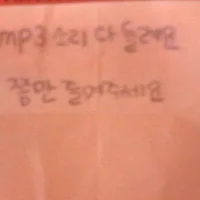 mp3 소리 다 들려요
좀만 줄여주세요